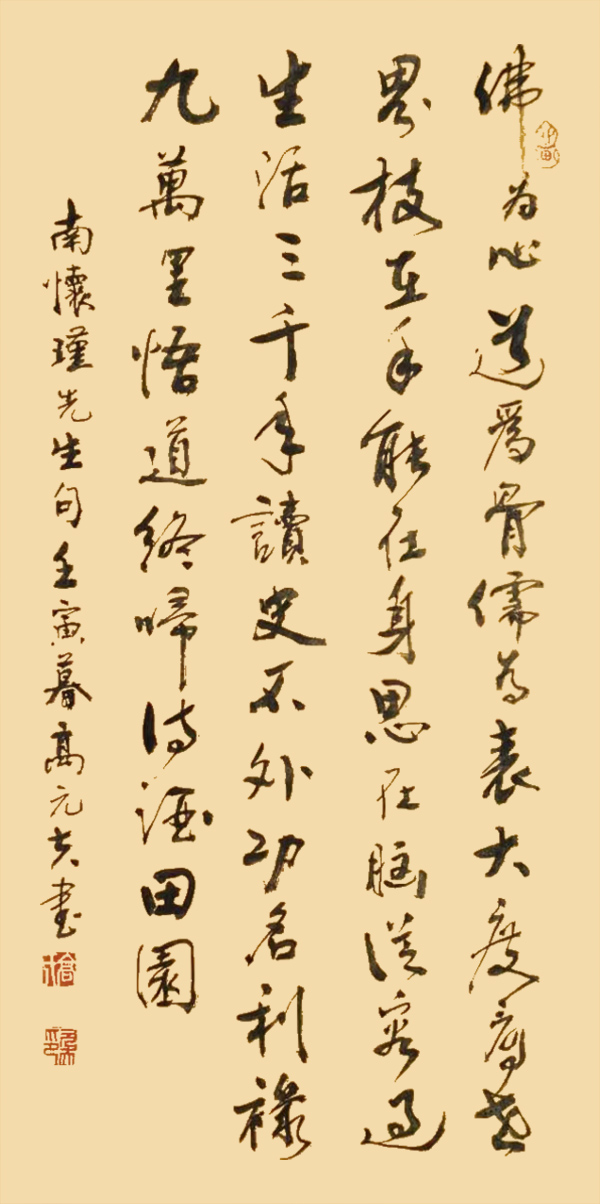 佛为心道為骨儒为表大度看世
界枝在手能在身思在腦従容過
生活三千年讀史不外功名利祿
九萬里悟道終歸詩酒田園
南懷瑾先生句壬寅春高元書